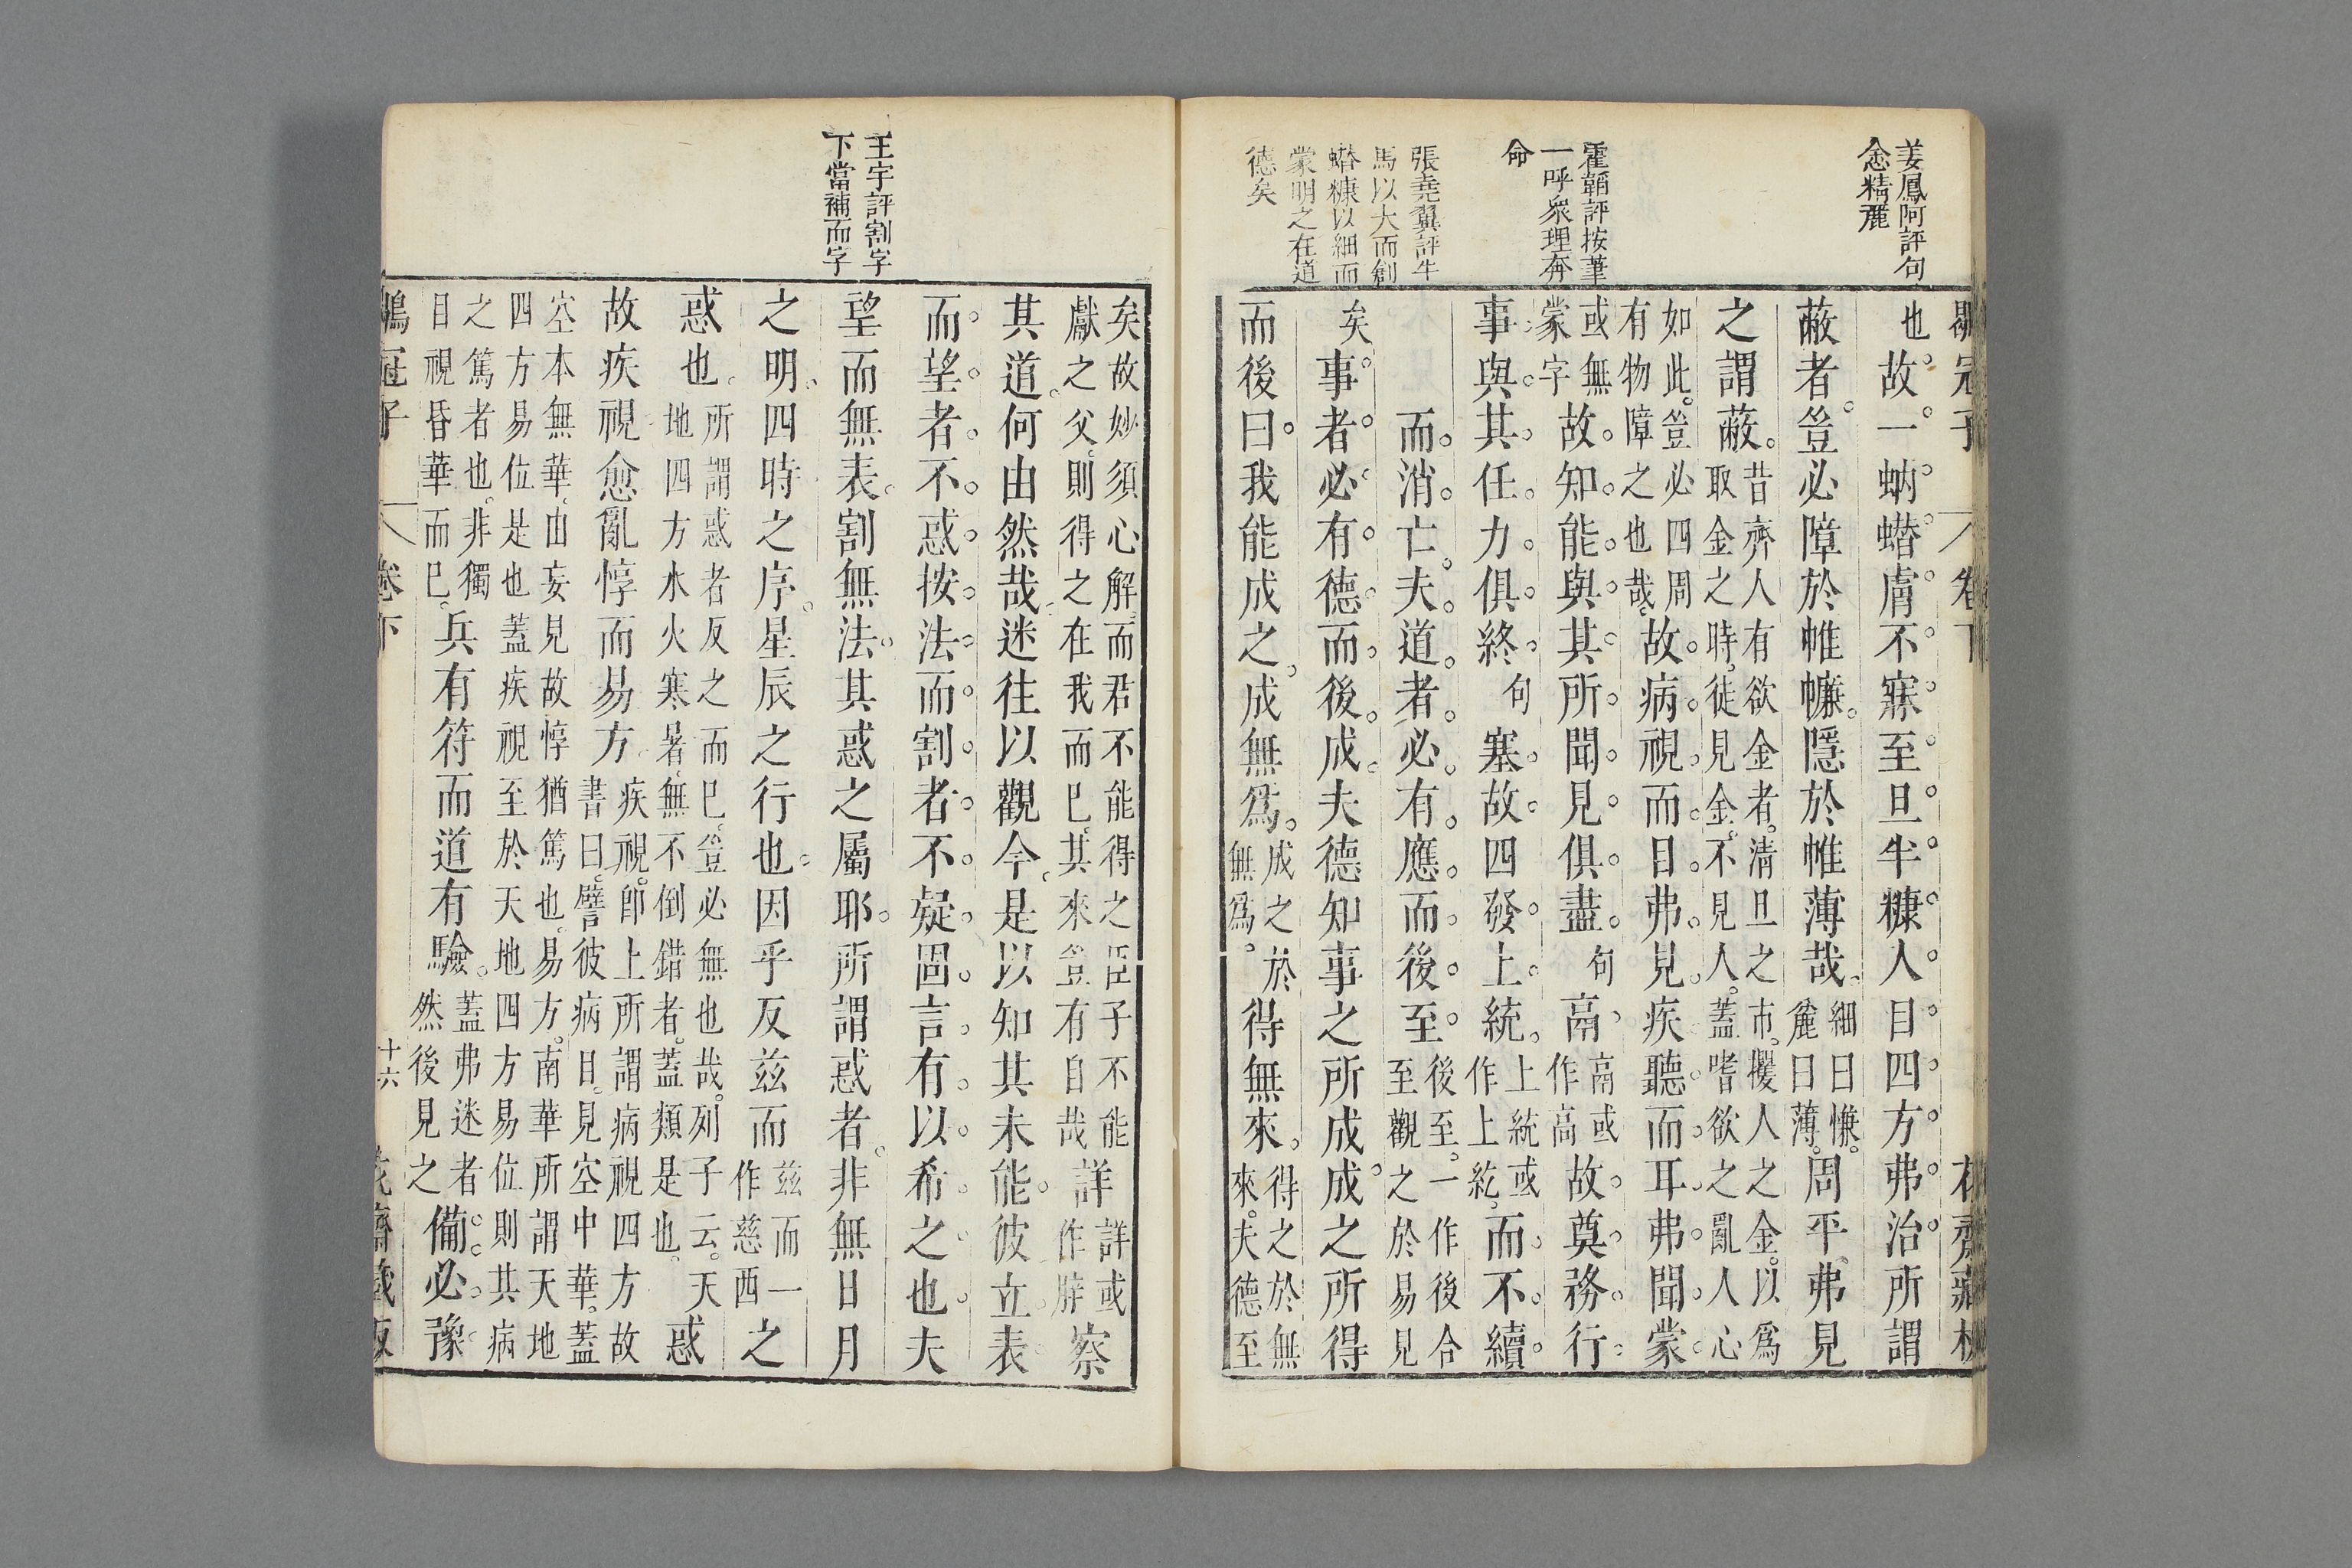 姜鳳阿評句
念精麗
霍韜評按筆
一呼衆理奔
命
張堯翼評牛
馬以大而創
䗞糠以細而
蒙明之在道
德矣
冠子 卷下
也故一蚋䗞膚不寐至旦半糠入目四方弗治所謂
蔽者豈必障於帷㡘隱於帷薄哉
細曰㡘
麄曰薄
周平弗見
之謂蔽
昔齊人有欲金者清旦之市攫人之金以爲
取金之時徒見金不見人蓋嗜欲之亂人心
如此豈必四周
有物障之也哉
故病視而目弗見疾聽而耳弗聞蒙
或無
蒙字
故知能與其所聞見俱盡句鬲
鬲或
作高
故奠務行
事與其任力俱終句塞故四發上統
上統或
作上紇
而不續
而消亡夫道者必有應而後至
後至一作後合
至觀之於易見
矣事者必有德而後成夫德知事之所成成之所得
而後曰我能成之成無爲
成之於
無爲
得無來
得之於無
來夫德至
矣故妙須心解而君不能得之臣子不能
獻之父則得之在我而已其來豈有自哉
詳
詳或
作辟
察
其道何由然哉迷往以觀今是以知其未能彼立表
而望者不惑按法而割者不疑固言有以希之也夫
王宇評割字
下當補而字
望而無表割無法其惑之屬耶所謂惑者非無日月
之明四時之序星辰之行也因乎反茲而
茲而一
作慈西
之
惑也
所謂惑者反之而已豈必無也哉列子云天
地四方水火寒暑無不倒錯者蓋類是也
惑
故疾視愈亂惇而易方
疾視即上所謂病視四方故
書曰譬彼病目見空中華蓋
空本無華由妄見故惇猶篤也易方南華所謂天地
四方易位是也蓋疾視至於天地四方易位則其病
之篤者也非獨
目視昏華而已
兵有符而道有驗
蓋弗迷者
然後見之
備必豫
鶡冠子 卷下 十六